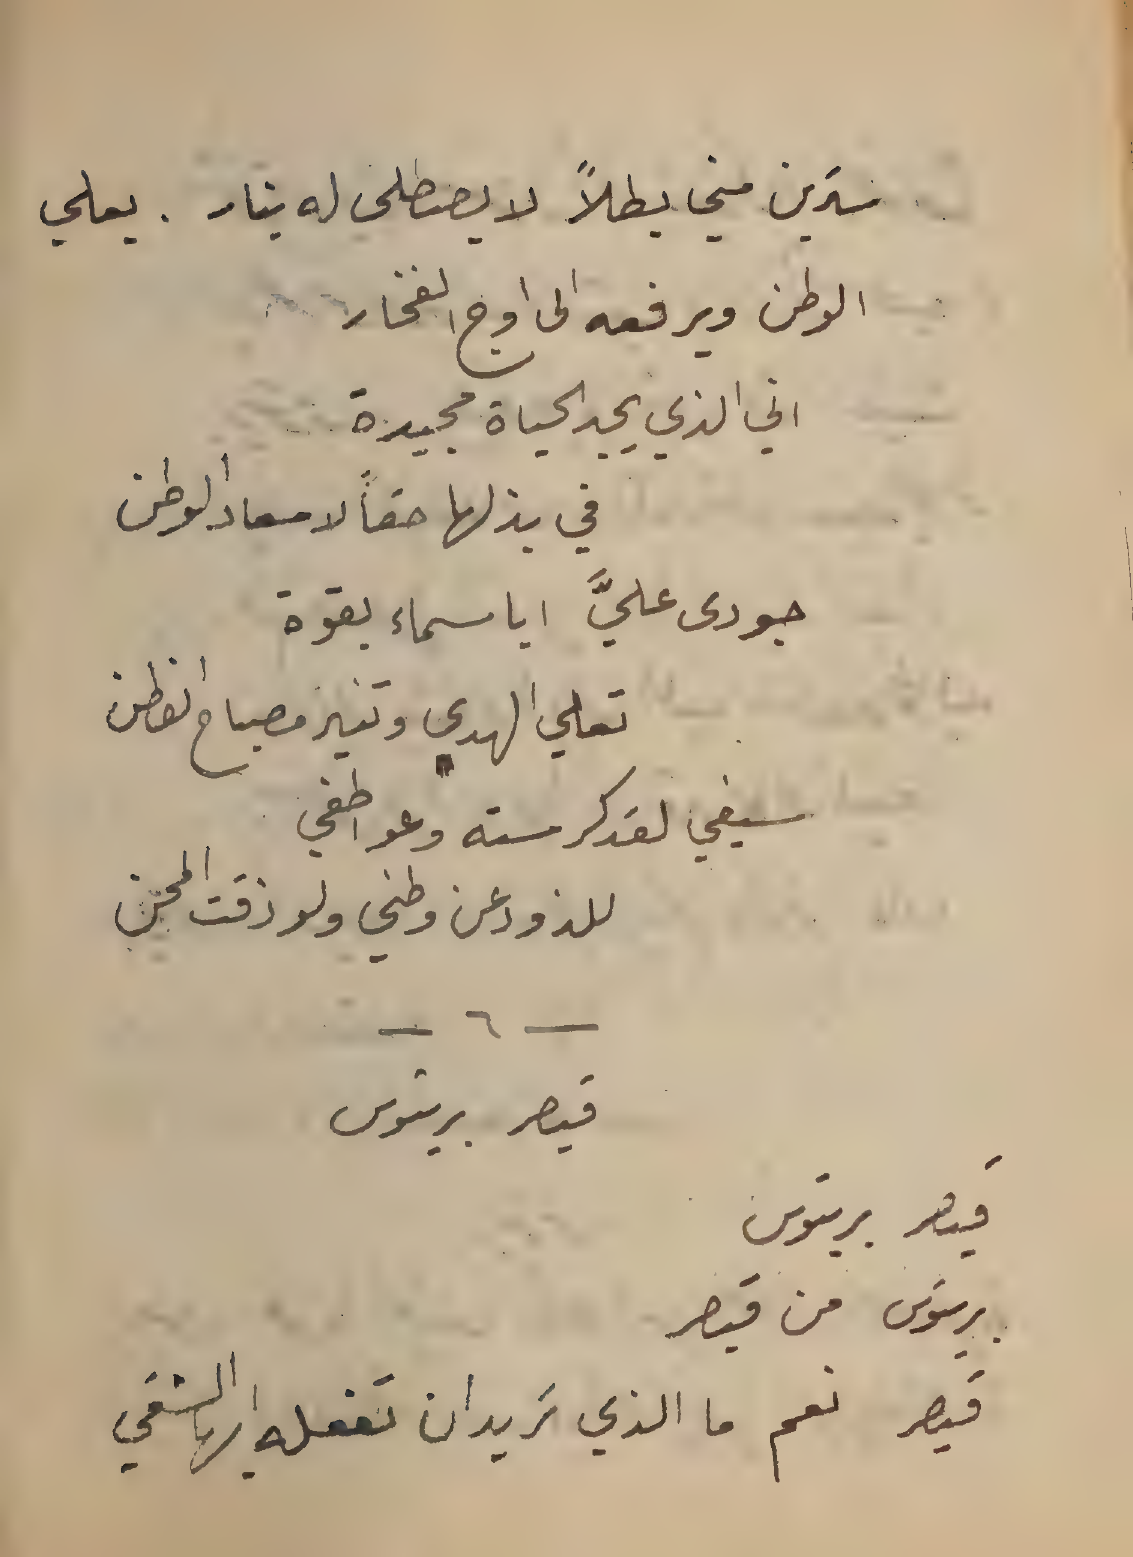 سترين مني بطلاً لا يصطلى له بنار . يعلي
الوطن ويرفعه الى اوج الفخار
اني الذي يجد الحياة مجيدة
في بذلها حقاً لاسعاد الوطن
جودى عليَّ ايا سماء بقوة
تعلي الهدى وتنير مصباح الفطن
سيفي لقد كرسته وعواطفي
للذود عن وطني ولو ذقت المحن
— ٦ —
قيصر بريتوس
قيصر بريتوس
بريتوس من قيصر
قيصر نعم ما الذي تريد ان تفعله ايها الشقي